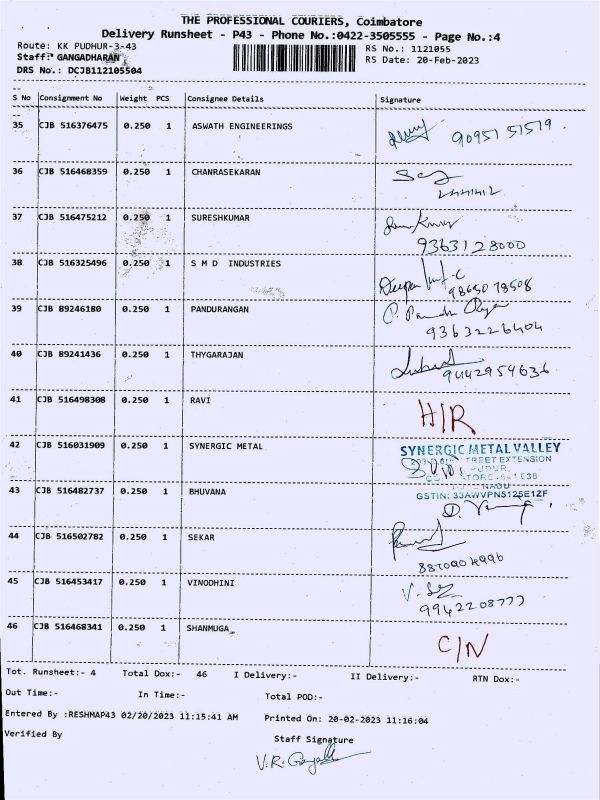 THE PROFESSIONAL COURIERS, Coimbatore
Delivery Runsheet - P43 - Phone No.:0422-3505555 - Page No.:4
Route: KK PUDHUR-3-43 RS No.: 1121055
Staff: GANGADHARAN RS Date: 20-Feb-2023
DRS No.: DCJB112105504
S No Consignment No Weight PCS Consignee Details Signature
35 CJB 516376475 0.250 1 ASWATH ENGINEERINGS
90951 51519
36 CJB 516468359 0.250 1 CHANRASEKARAN
37 CJB 516475212 0.250 1 SURESHKUMAR
9363128000
38 CJB 516325496 0.250 1 S M D INDUSTRIES
9865078508
39 CJB 89246180 0.250 1 PANDURANGAN
9363226404
40 CJB 89241436 0.250 1 THYGARAJAN
9442959636
41 CJB 516498308 0.250 1 RAVI H/R
42 CJB 516031909 0.250 1 SYNERGIC METAL SYNERGIC METAL VALLEY
STREET EXTENSION
GSTIN: 33AWVPN5125E1ZF
43 CJB 516482737 0.250 1 BHUVANA
44 CJB 516502782 0.250 1 SEKAR
45 CJB 516453417 0.250 1 VINODHINI
9942208777
46 CJB 516468341 0.250 1 SHANMUGA C/N
Tot. Runsheet:- 4 Total Dox:- 46 I Delivery:- II Delivery:- RTN Dox:-
Out Time:- In Time:- Total POD:-
Entered By :RESHMAP43 02/20/2023 11:15:41 AM Printed On: 20-02-2023 11:16:04
Verified By Staff Signature